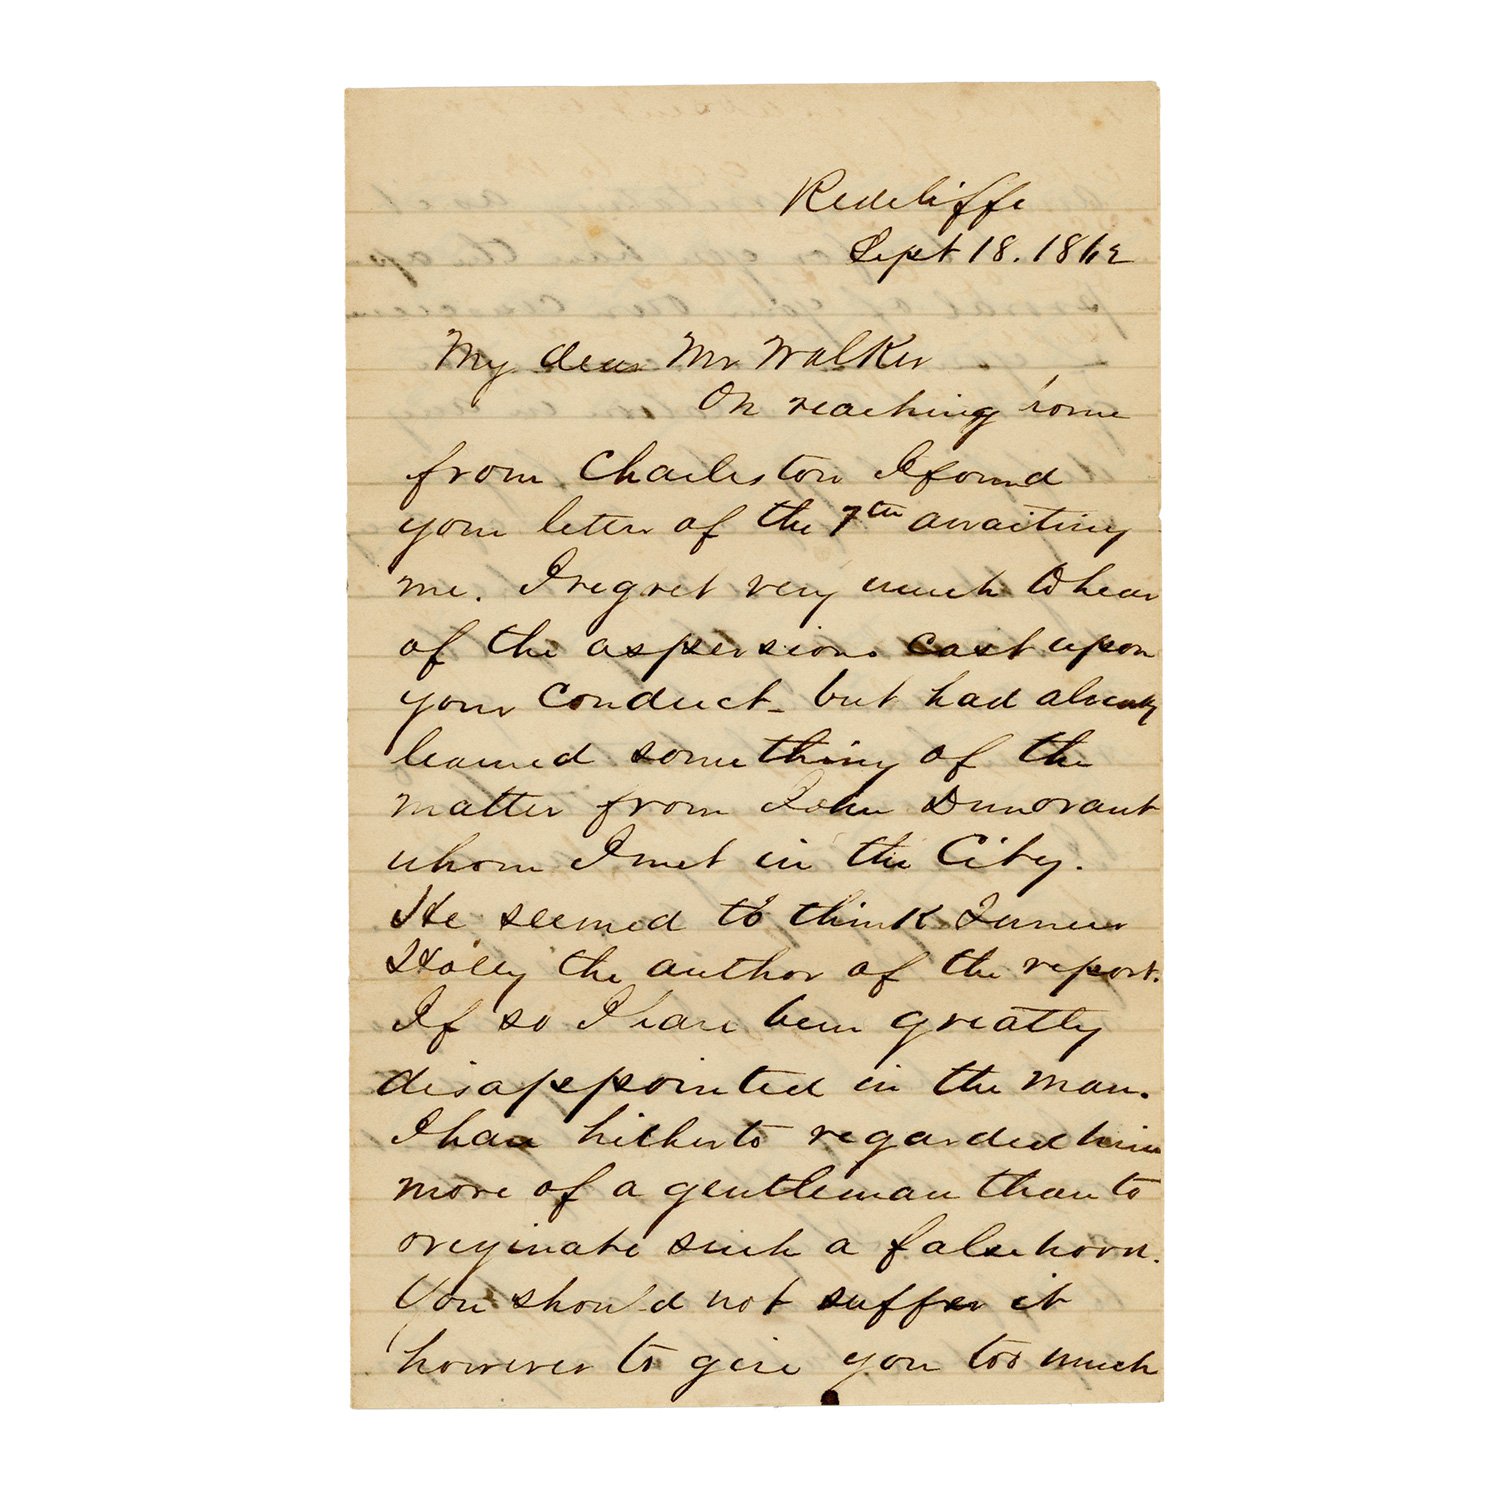 Redcliffe
Sept 18. 1862
My dear Mr Walker
On reaching home
from Charleston I found
your letter of the 7th awaiting
me. I regret very much to hear
of the aspersions cast upon
your conduct - but had already
learned something of the
matter from John Dunovant
whom I met in the City.
He seemed to think
the author of the report.
If so I have been greatly
disappointed in the man.
I have hitherto regarded him
more of a gentleman than to
originate such a falsehood.
You should not suffer it
however to give you too much